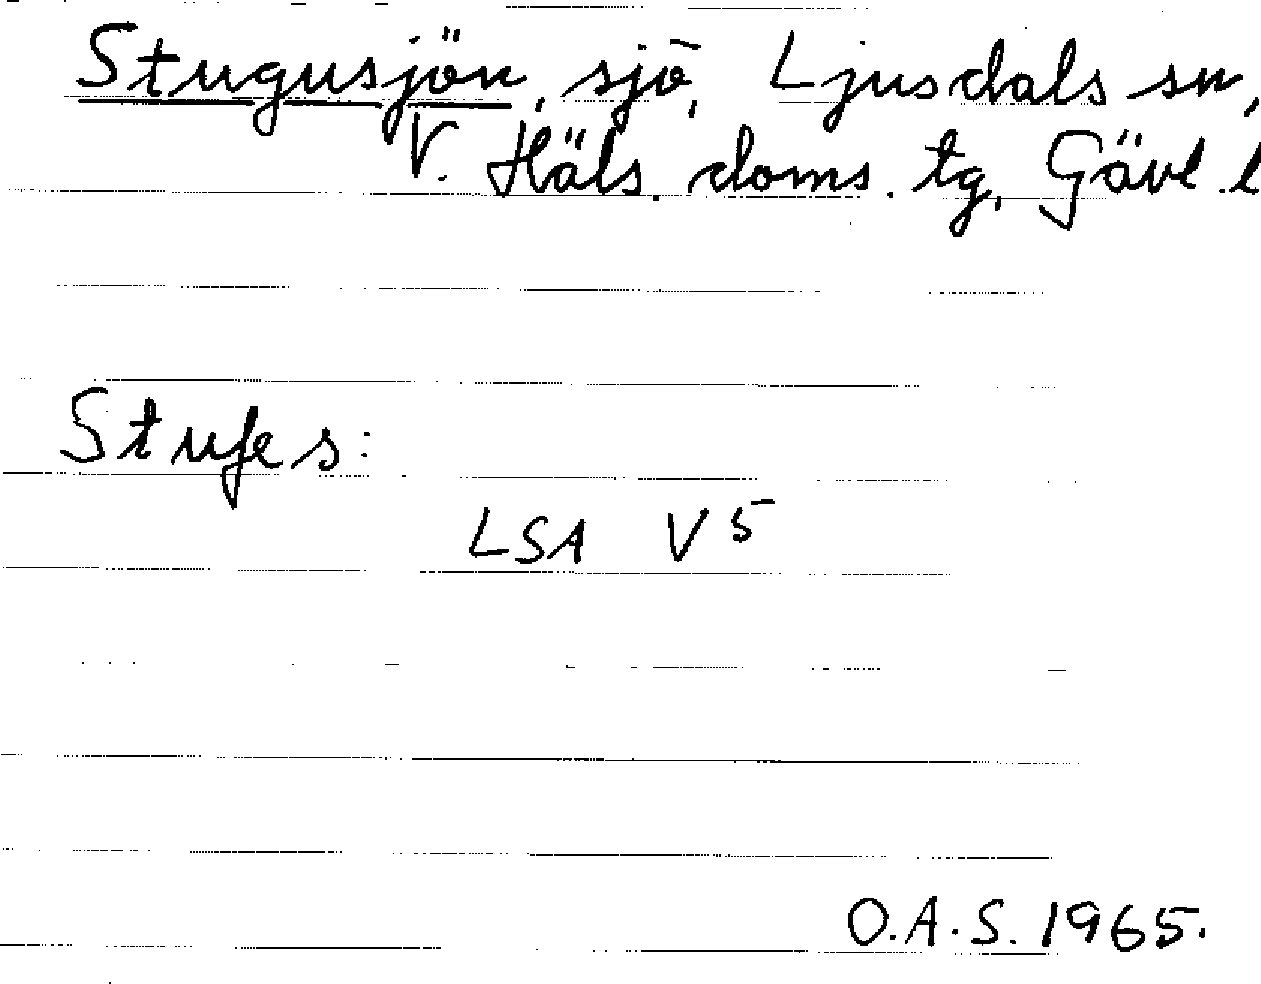 Stugusjön, sjö, Ljusdals sn,
V. Häls. doms. tg, Gävl. l
Stufes:
LSA V5
O.A.S. 1965.